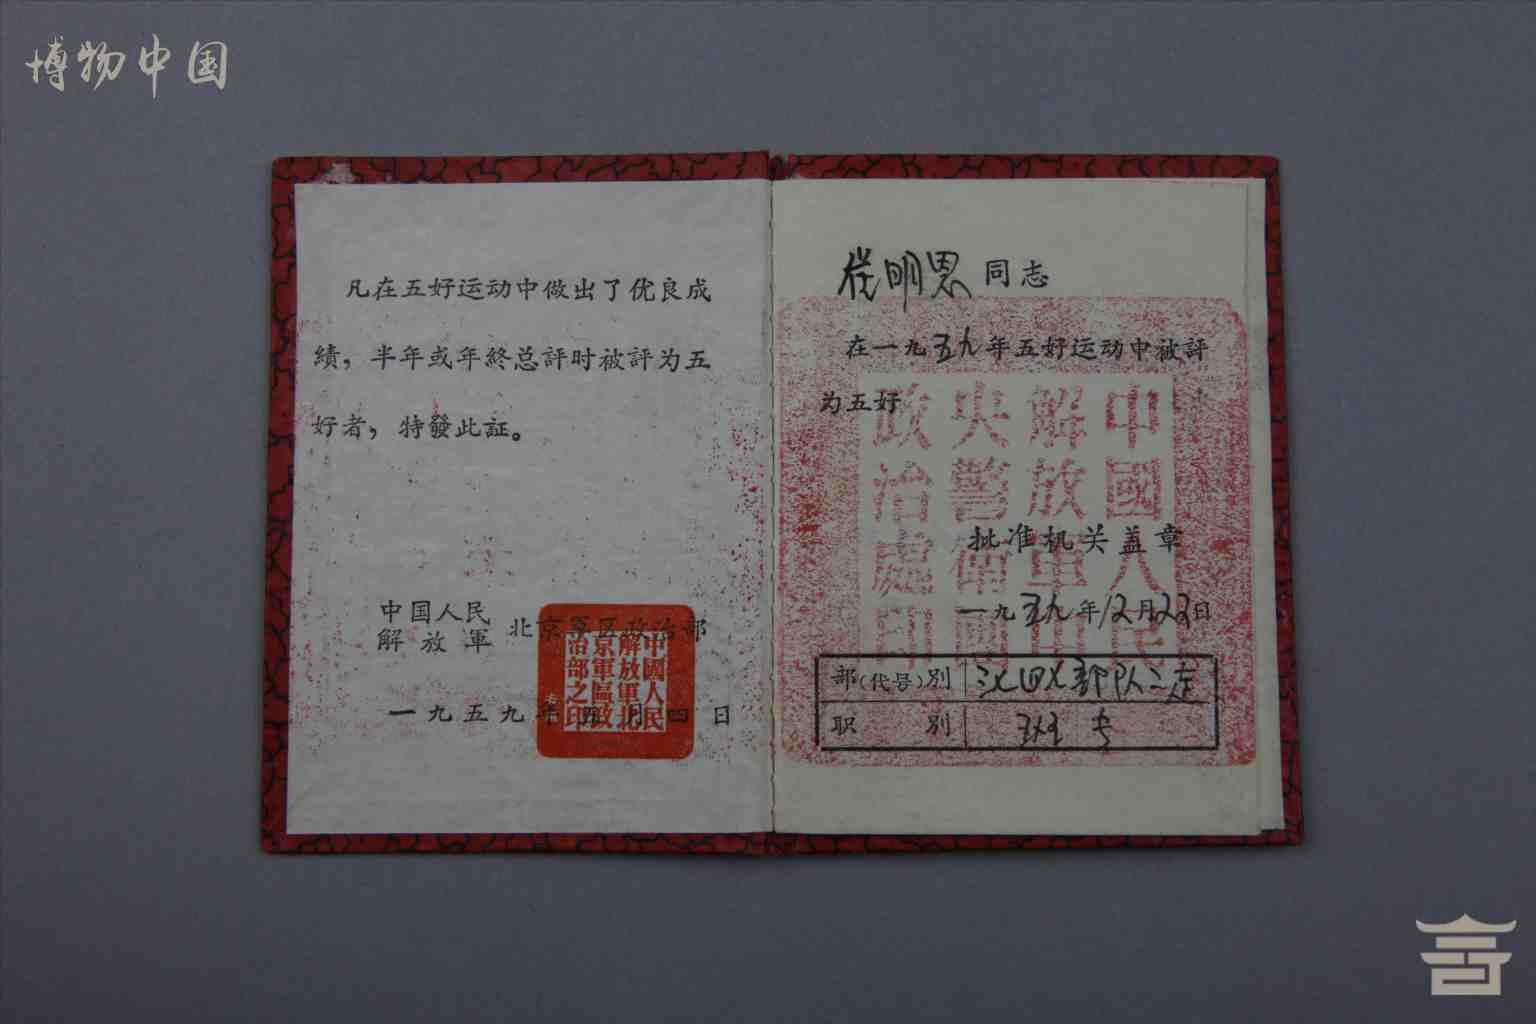 博物中国
凡在五好运动中做出了优良成
績，半年或年終总評时被評为五
好者，特發此証。
中国人民
解放軍 北京軍区政治部
一九五九年五月四日
中國人民
解放軍北
京軍區政
治部之印
明恩 同志
在一九五九年五好运动中被評
为五好
批准机关盖章
一九五九年12月23日
中國人民
解放軍中
央警衛團
政治處印
部(代号)別 部队二连
职別